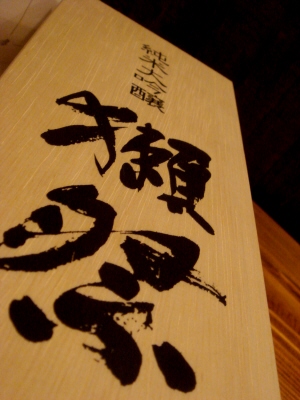 純米大吟醸
獺祭